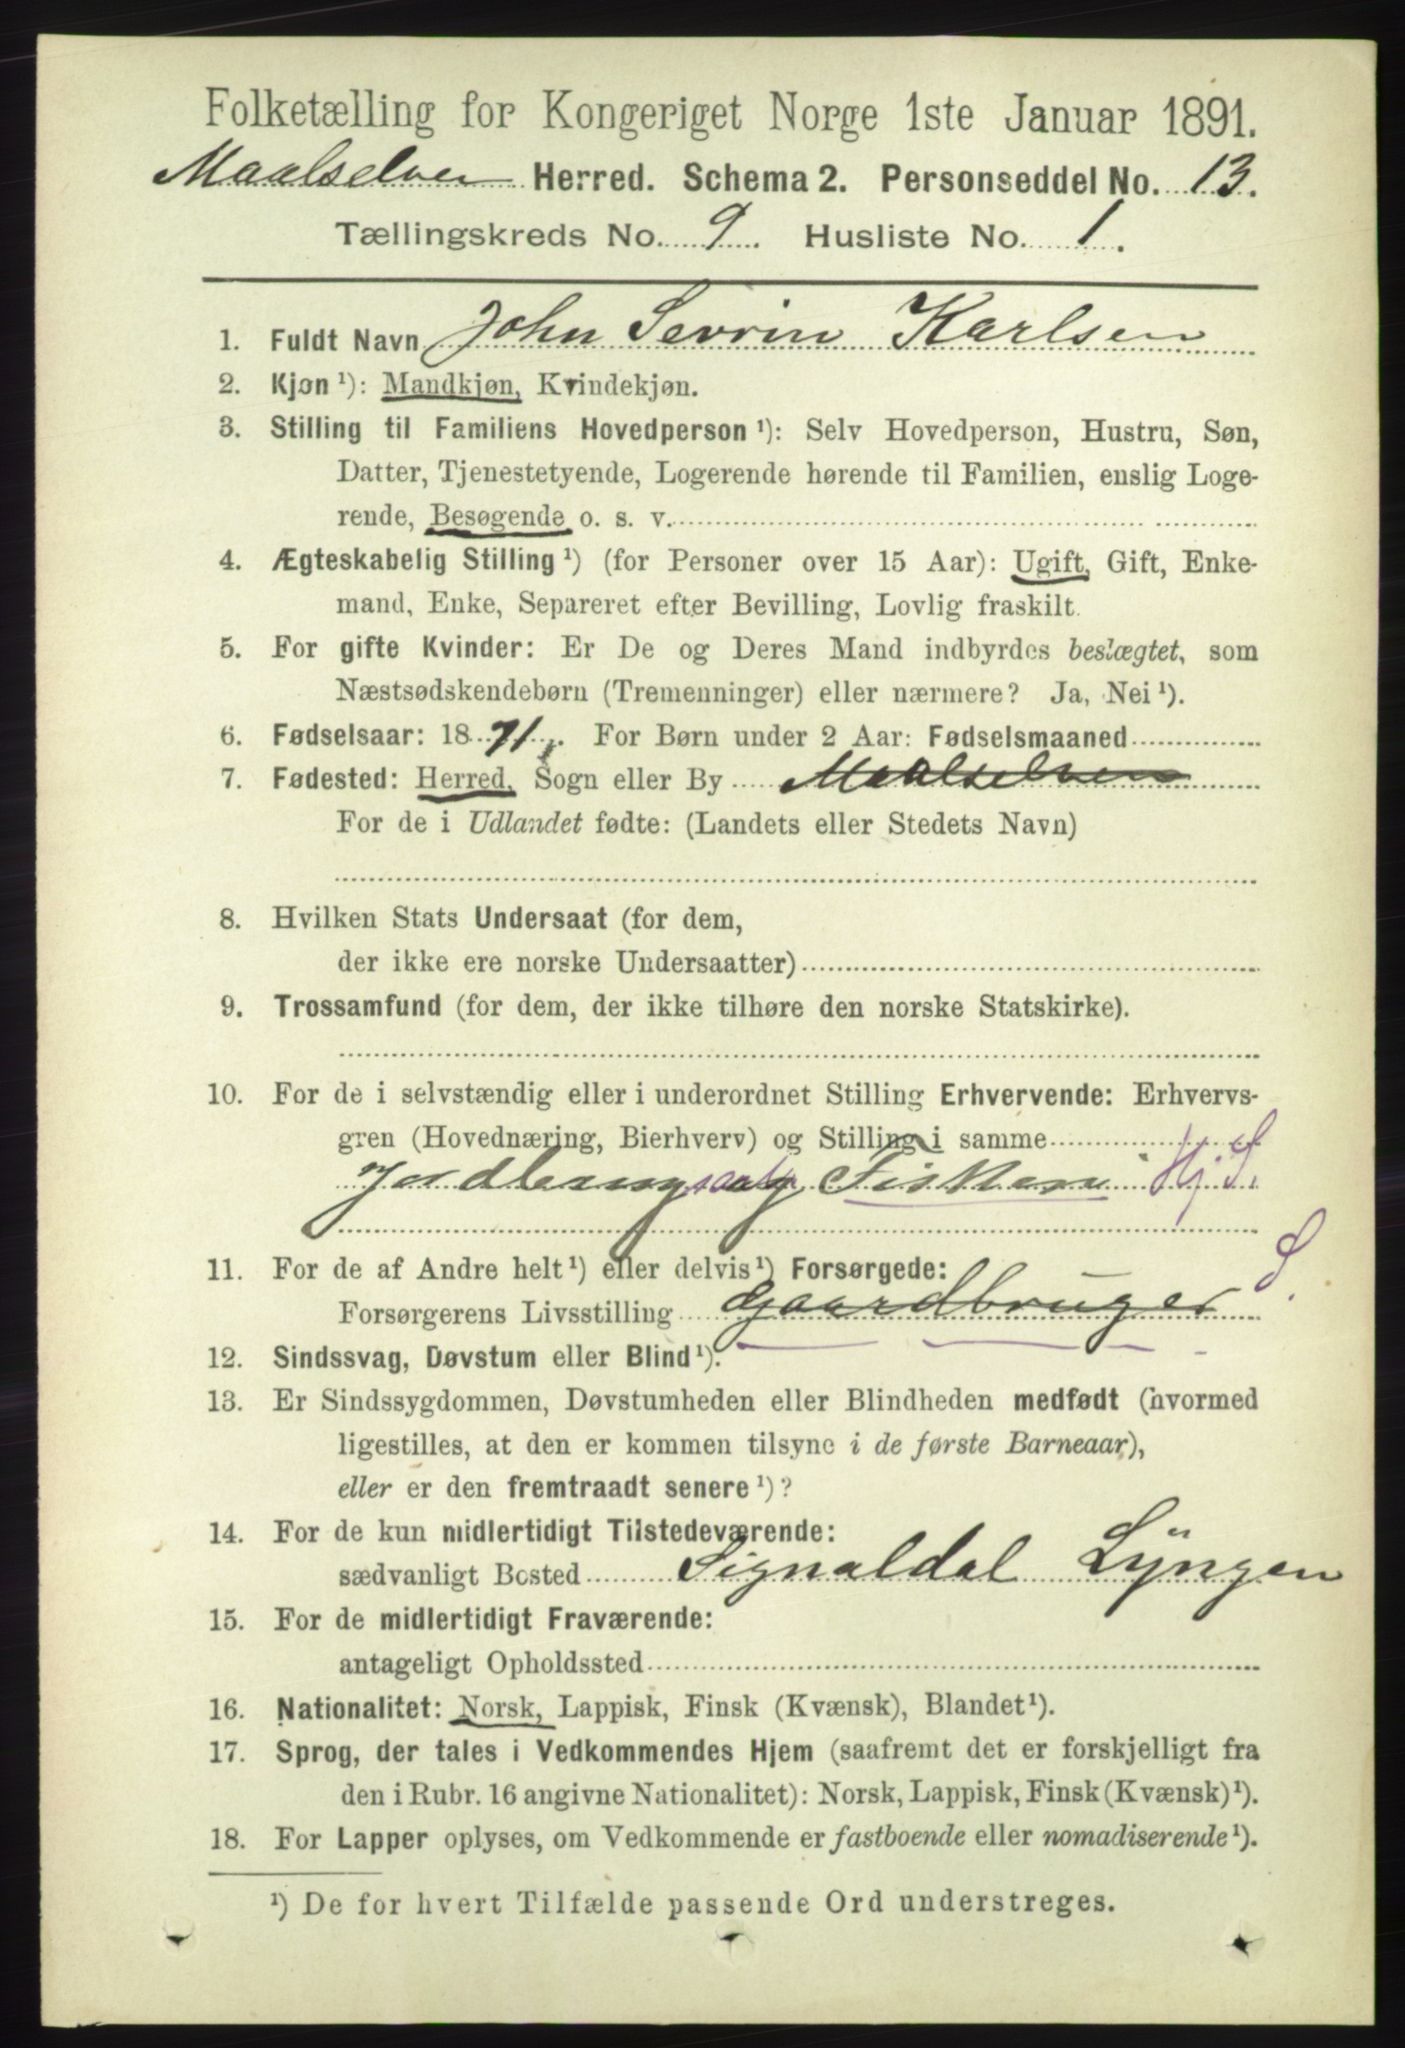 Folketælling for Kongeriget Norge 1ste Januar 1891.
Maalselven Herred. Schema 2. Personseddel No. 13.
Tællingskreds No. 9. Husliste No. 1.
1. Fuldt Navn John Sevrin Karlsen
2. Kjøn ¹): Mandkjøn, Kvindekjøn.
3. Stilling til Familiens Hovedperson ¹): Selv Hovedperson, Hustru, Søn,
Datter, Tjenestetyende, Logerende hørende til Familien, enslig Loge-
rende, Besøgende o. s. v.
4. Ægteskabelig Stilling ¹) (for Personer over 15 Aar): Ugift, Gift, Enke-
mand, Enke, Separeret efter Bevilling, Lovlig fraskilt.
5. For gifte Kvinder: Er De og Deres Mand indbyrdes beslægtet, som
Næstsødskendebørn (Tremenninger) eller nærmere? Ja, Nei ¹).
6. Fødselsaar: 1871. For Børn under 2 Aar: Fødselsmaaned
7. Fødested: Herred, Sogn eller By Maalselven
For de i Udlandet fødte: (Landets eller Stedets Navn)
8. Hvilken Stats Undersaat (for dem,
der ikke ere norske Undersaatter)
9. Trossamfund (for dem, der ikke tilhøre den norske Statskirke).
10. For de i selvstændig eller i underordnet Stilling Erhvervende: Erhvervs-
gren (Hovednæring, Bierhverv) og Stilling i samme
Jordbrug og Fiskeri Hj. S.
11. For de af Andre helt ¹) eller delvis ¹) Forsørgede:
Forsørgerens Livsstilling Gaardbruger
12. Sindssvag, Døvstum eller Blind ¹).
13. Er Sindssygdommen, Døvstumheden eller Blindheden medfødt (hvormed
ligestilles, at den er kommen tilsyne i de første Barneaar),
eller er den fremtraadt senere ¹)?
14. For de kun midlertidigt Tilstedeværende:
sædvanligt Bosted Signaldal Lyngen
15. For de midlertidigt Fraværende:
antageligt Opholdssted
16. Nationalitet: Norsk, Lappisk, Finsk (Kvænsk), Blandet ¹).
17. Sprog, der tales i Vedkommendes Hjem (saafremt det er forskjelligt fra
den i Rubr. 16 angivne Nationalitet): Norsk, Lappisk, Finsk (Kvænsk) ¹).
18. For Lapper oplyses, om Vedkommende er fastboende eller nomadiserende ¹).
¹) De for hvert Tilfælde passende Ord understreges.